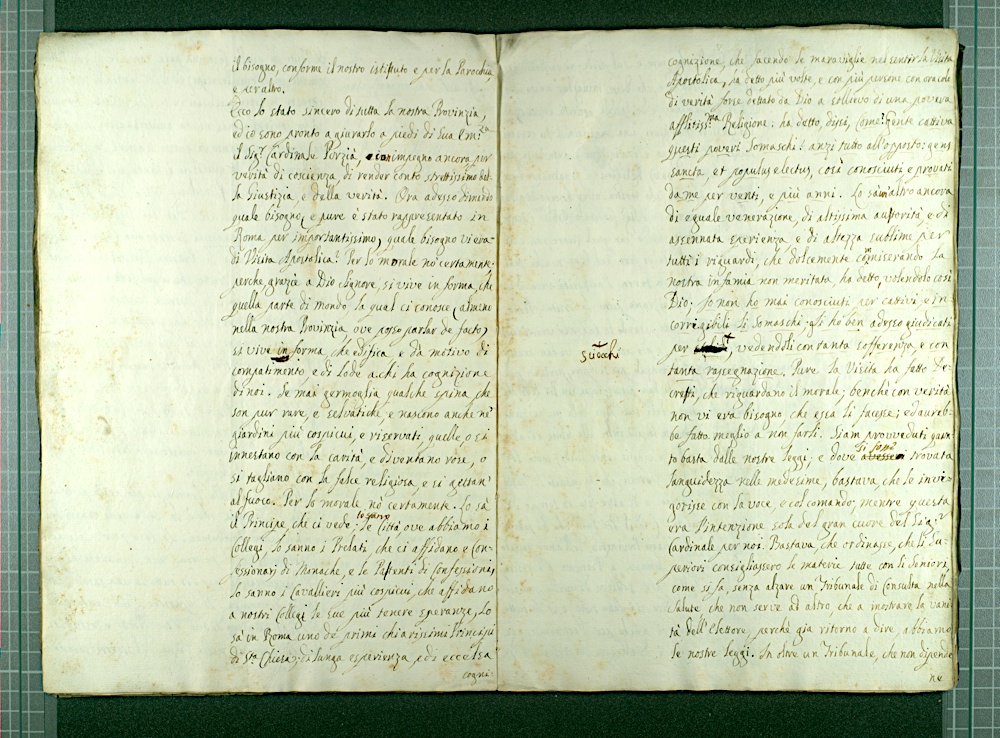 il bisogno, conforme il nostro istituto e per la Parochia
e per altro.
Ecco lo stato sincero di tutta la nostra Provinzia,
ed io sono pronto a giurarlo a piedi di Sua Em.za
il Sig.r Cardinale Porzia, con impegno ancora per
verità di coscienza, di render conto strettissimo del-
la Giustizia, e della verità. Ora adesso dimando
quale bisogno, e pure è stato rappresentato in
Roma per importantissimo, quale bisogno vi era
di Visita Apostolica? Per lo morale nò certamente;
perche, grazie a Dio Signore, si vive in forma, che
quella parte di mondo, la qual ci conosce (almeno
nella nostra Provinzia, ove posso parlar de facto)
si vive in forma, che edifica, e dà motivo di
compatimento e di lode a chi ha cognizione
di noi. Se mai germoglia qualche spina, che
son pur rare, e selvatiche, e nascono anche ne'
giardini più cospicui, e riservati, quelle, o si
innestano con la carità, e diventano rose, o
si tagliano con la falce religiosa, e si gettan
al fuoco. Per lo morale nò certamente. Lo sà
il Principe, che ci vede; lo sanno le Città ove abbiamo i
Collegi. lo sanno i Prelati, che ci affidano e Con-
fessionarj di Monache, e le Patenti di Confessionij
lo sanno i Cavallieri più cospicui, che affidano
a nostri Collegi le sue più tenere speranze, lo
sà in Roma uno de' primi chiarissimi Principi
di S.ta Chiesa; di lunga esperienza, e di eccelsa
cogni-
sudochi
cognizione, che facendo le maraviglie nel sentir la Visita
Apostolica, ha detto più volte, e con più persone con oracolo
di verità forse dettato da Dio a sollievo di una povera
afflitiss.ma Religione: ha detto, dissi, Come? Gente cattiva
questi poveri Somaschi? anzi tutto all'opposto: gens
sancta, et populus electus, così conosciuti e provati
da me per venti, e più anni. Lo sà in altro ancora
di eguale venerazione, di altissima autorità, e di
assennata sperienza, e di altezza sublime per
tutti i riguardi, che dolcemente comiserando la
nostra infamia non meritata, ha detto, volendolo così
Dio. Io non hò mai conosciuti per cattivi, e in-
corregibili li Somaschi; li hò ben adesso giudicati
per vedendoli con tanta sofferenza, e con
tanta rassegnazione. Pure la Visita ha fatto De-
creti, che riguardano il morale; benchè con verità
non vi era bisogno che essa li facesse; ed avreb-
be fatto meglio a non farli. Siam proveduti quan-
to basta dalle nostre leggi; e dove si fosse trovata
languidezza nelle medesime, bastava, che lo invi-
gorisse con la voce, e col comando; mentre questa
era l'intenzione sola del gran cuore del Sig.r
Cardinale per noi. Bastava, che ordinasse, che li Su-
periori consigliassero le materie tutte con li Seniori,
come si fa, senza alzare un Tribunale di Consulta nella
Salute che non serve ad altro, che a mostrare la vani-
tà dell'Elettore, perchè già ritorno a dire, abbiamo
le nostre leggi. In oltre un Tribunale, che non dipende
ne